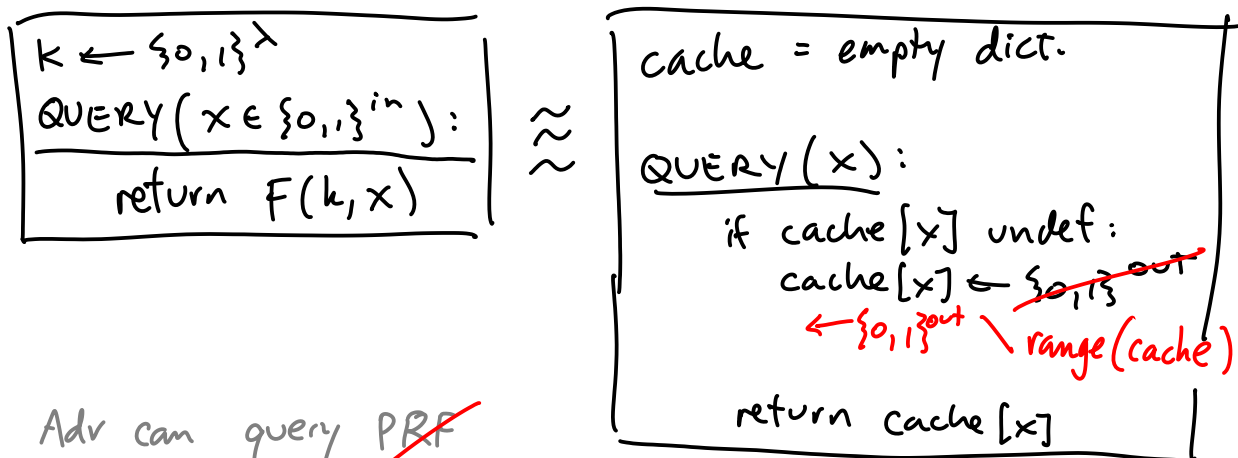 k ← {0,1}^λ
QUERY(x ∈ {0,1}^in):
return F(k,x)
≈≈
cache = empty dict.
QUERY(x):
if cache[x] undef:
cache[x] ← {0,1}^out
← {0,1}^out \ range(cache)
return cache[x]
Adv can query PRF